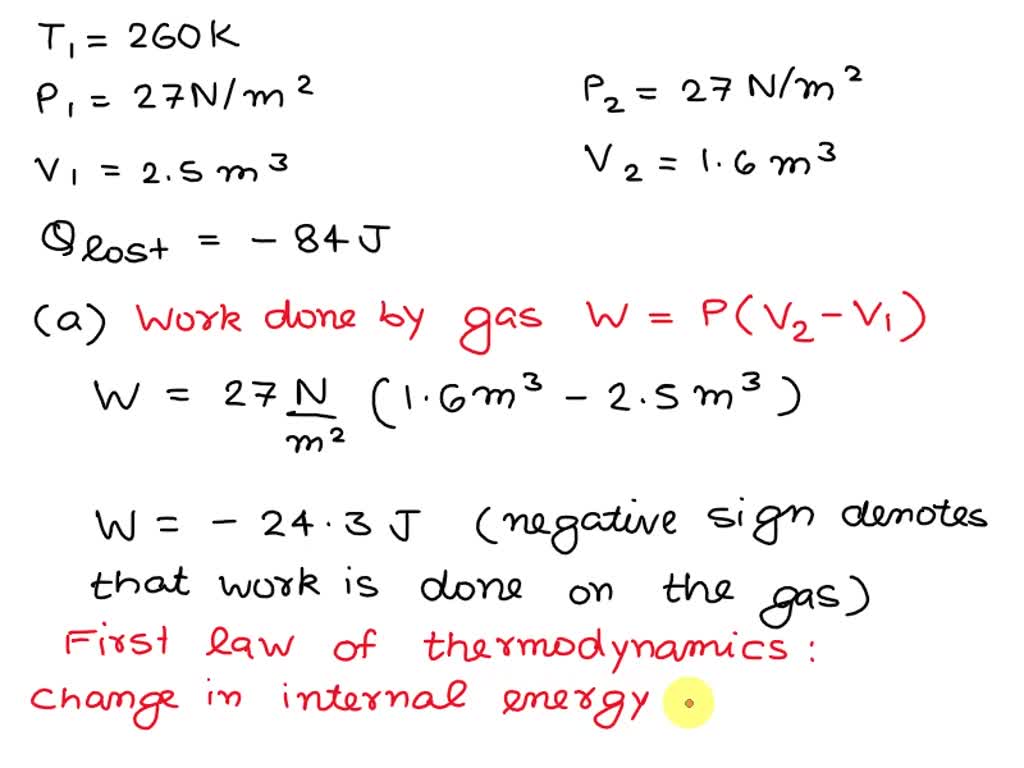 T₁ = 260K
P₁ = 27N/m² P₂ = 27 N/m²
V₁ = 2.5 m³ V₂ = 1.6 m³
Qlost = - 84 J
(a) Work done by gas W = P(V₂ - V₁)
W = 27 N/m² (1.6m³ - 2.5 m³)
W = - 24.3 J (negative sign denotes
that work is done on the gas)
First law of thermodynamics:
change in internal energy